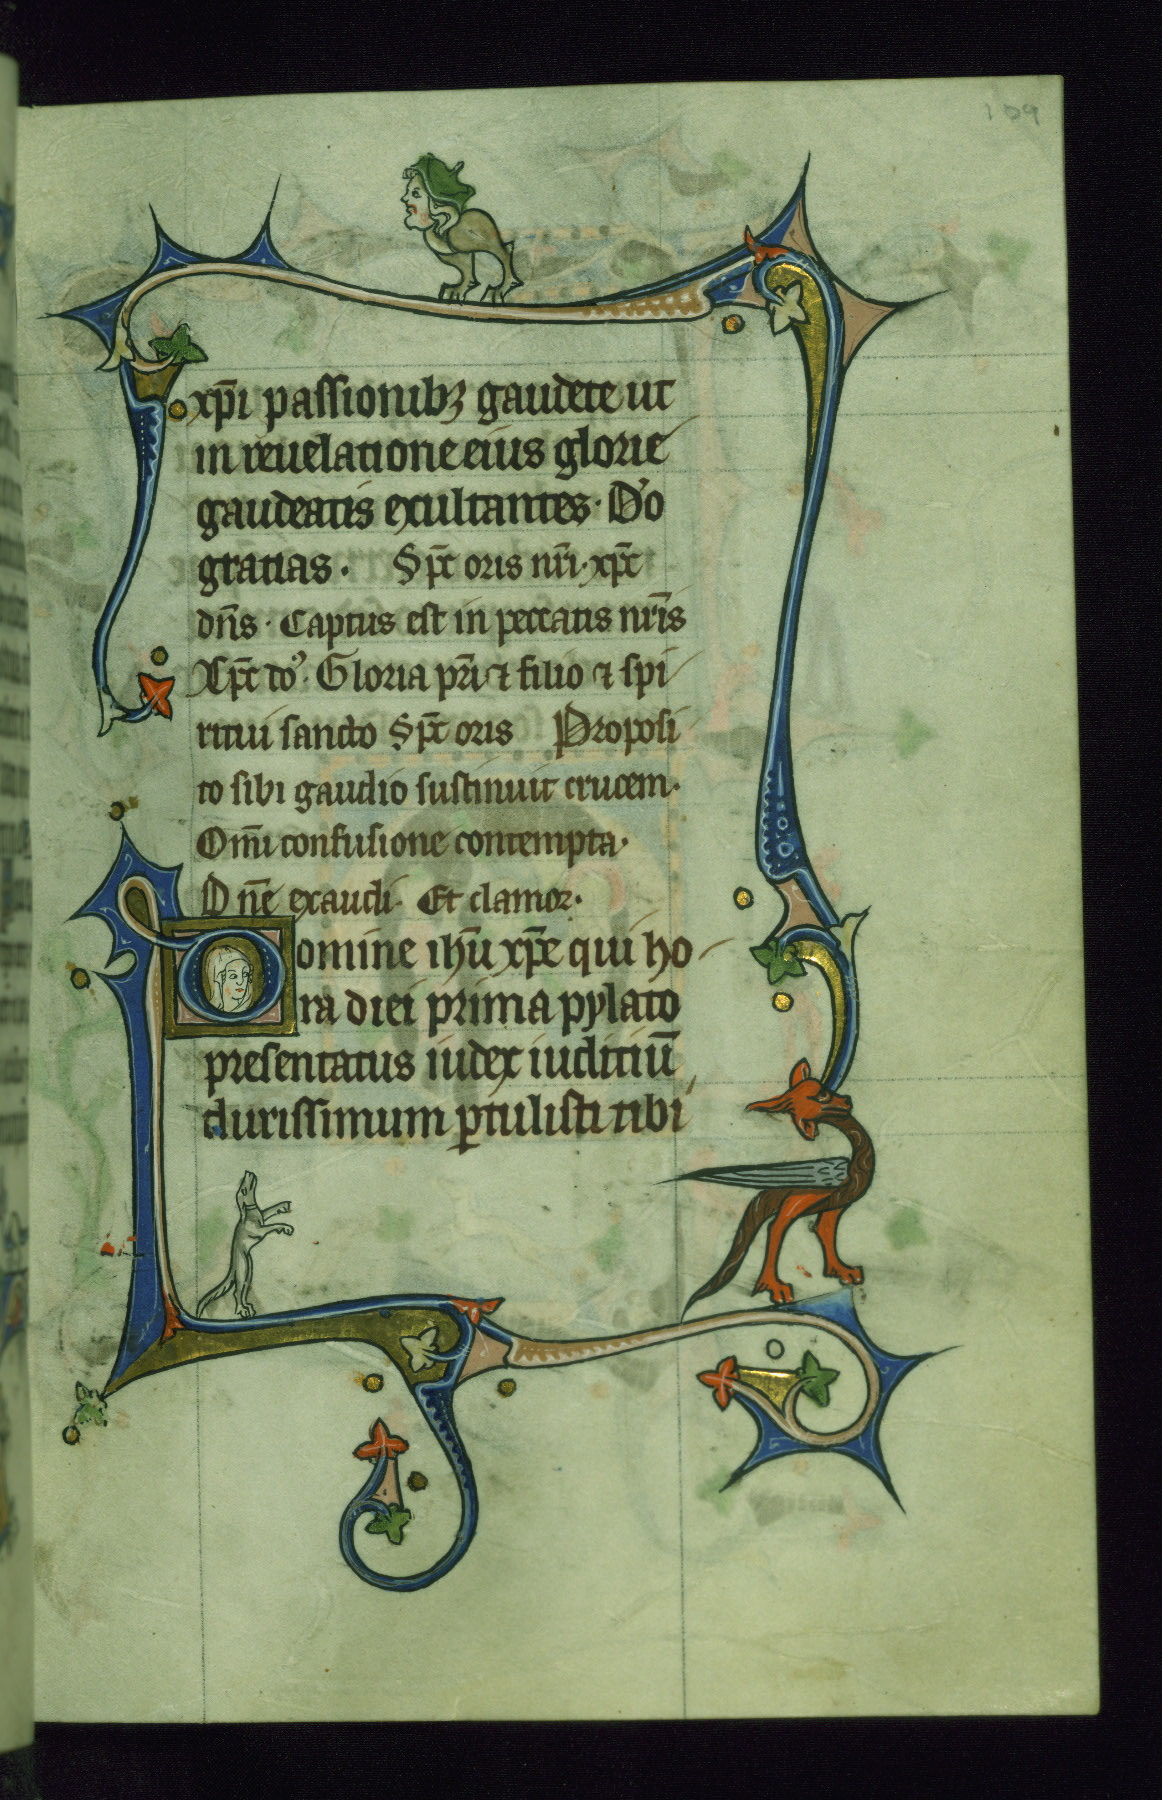 109
xp̄i passionibꝫ gaudete ut
in reuelatione eius glorie
gaudeatis exultantes· Do
gratias· Sp̄c oris nr̄i· xp̄c
dn̄s· Captus est in peccatis nr̄is
Xp̄c do· Gloria pr̄i ⁊ filio ⁊ spi
ritui sancto Sp̄c oris Proposi
to sibi gaudio sustinuit crucem·
Om̄i confusione contempta·
Dn̄e exaudi· Et clamor·
Domine ih̄u xp̄e qui ho
ra diei prima pylato
presentatus iudex iuditiū
durissimum ꝑtulisti tibi